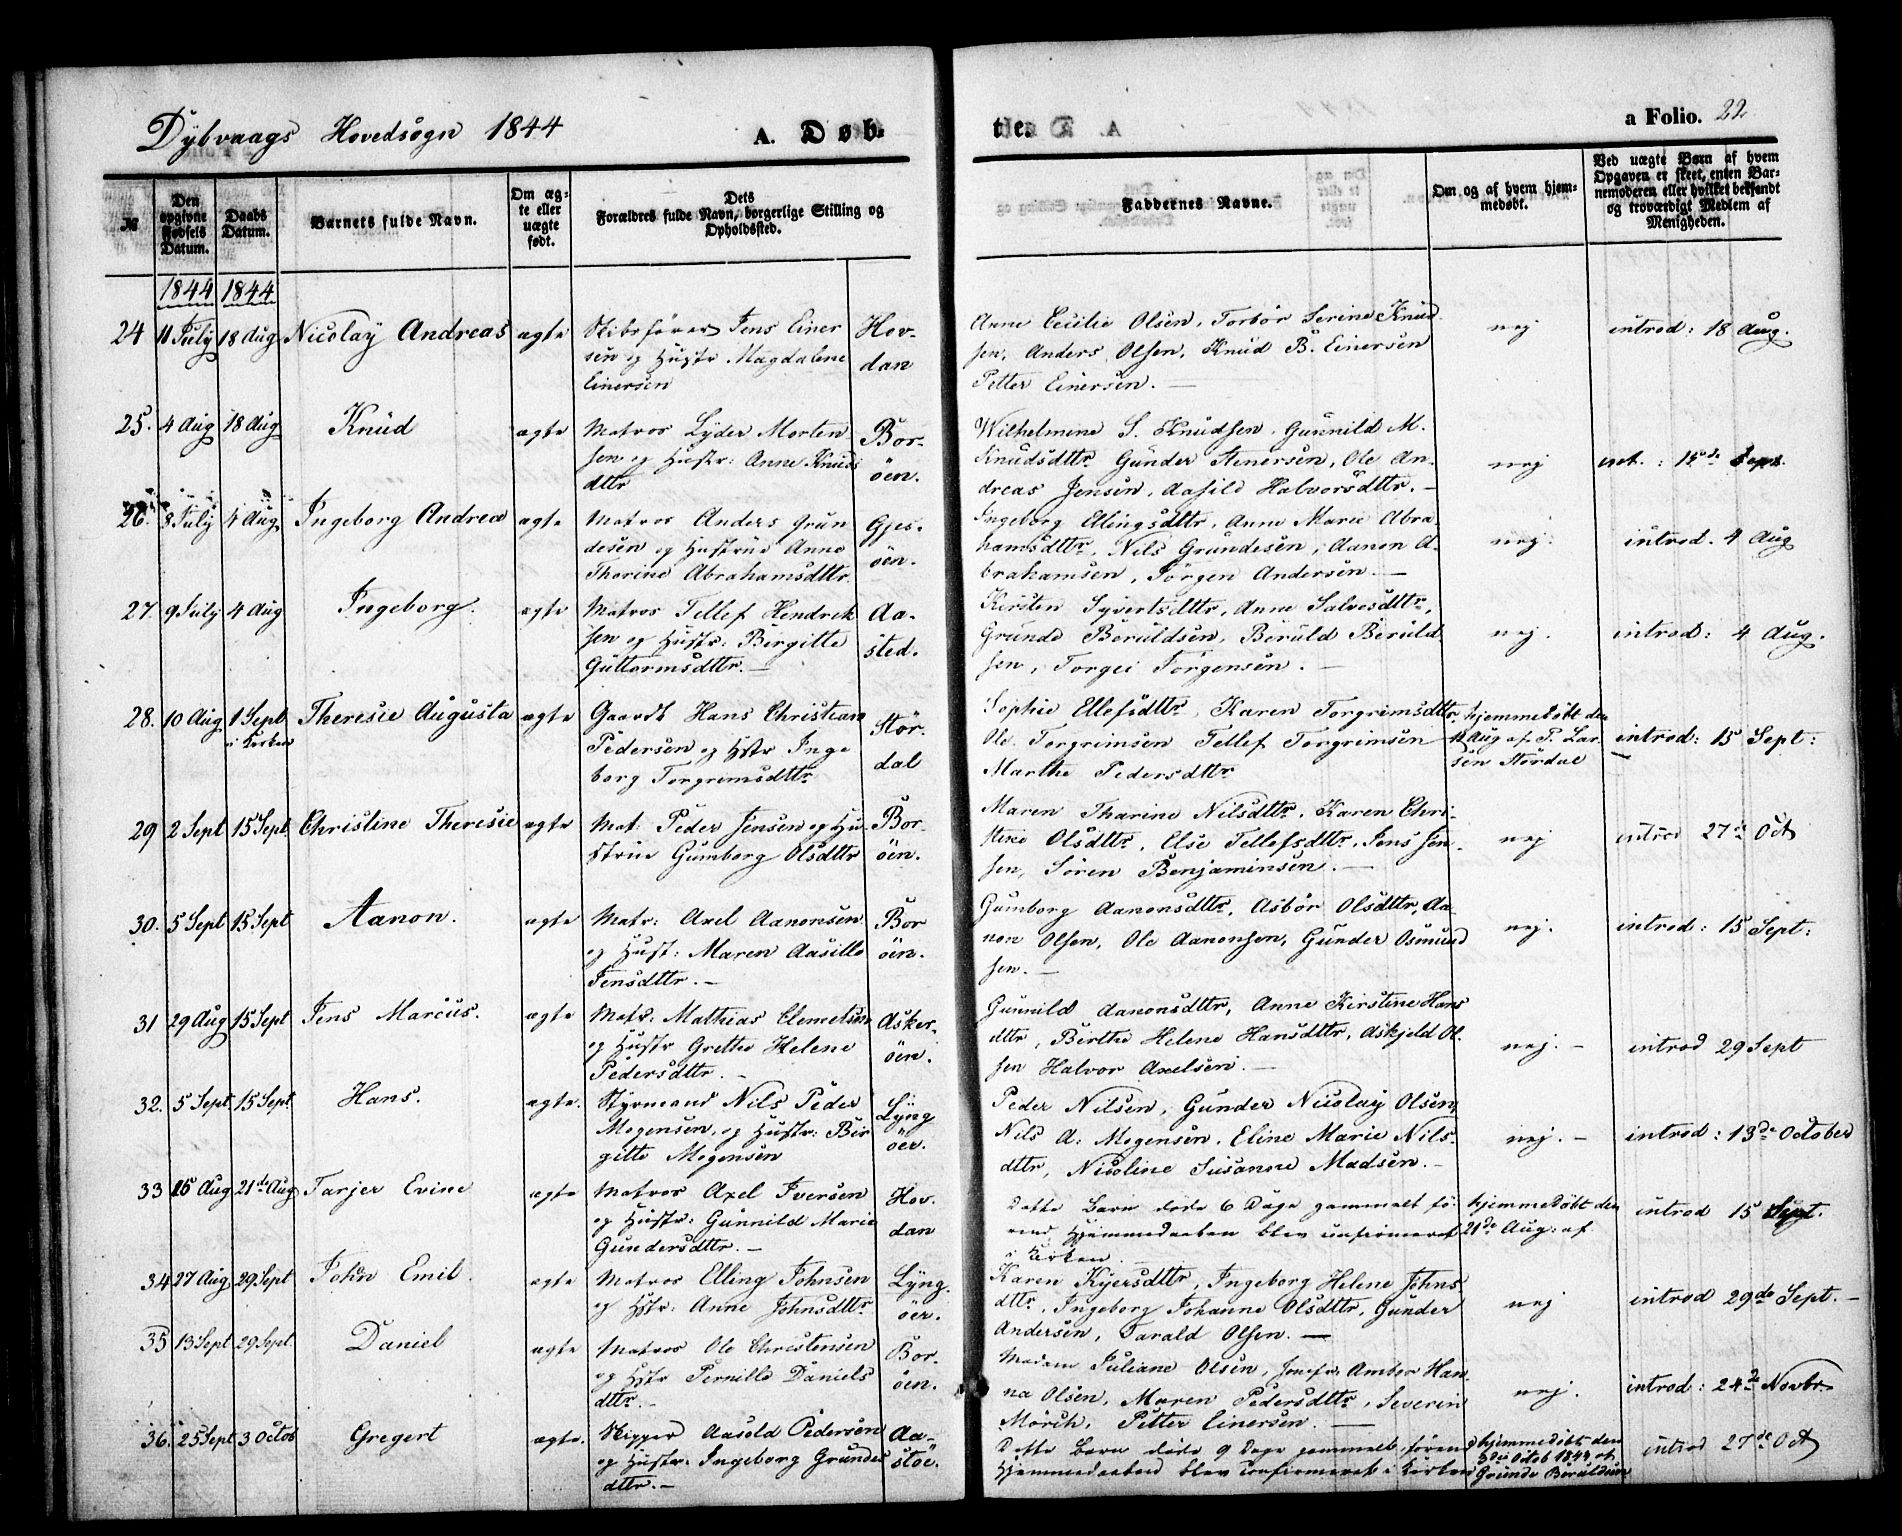 Dybvaags Hovedsogn 1844 A. Døb-
te. a Folio. 22.
№
Den opgivne Fødsels Datum.
Daabs Datum.
Barnets fulde Navn.
Om ægte eller uægte født.
Dets Forældres fulde Navn, borgerlige Stilling og Opholdssted.
Faddernes Navne.
Om og af hvem hjemmedøbt.
Ved uægte Børn af hvem Opgaven er skeet, enten Barnemoderen eller hvilket bekjendt og troværdigt Medlem af Menigheden.
1844 1844
24 11 July 18 Aug Nicolay Andreas ægte
Skibsfører Jens Einer
sen og Hustr. Magdalene
Einersen
Hov-
dan
Anne Cecilie Olsen, Torbør Serine Knud
sen, Anders Olsen, Knud B. Einersen
Petter Einersen. —
nej
introd: 18 Aug.
25. 4 Aug 18 Aug Knud ægte
Matros Lyder Morten
sen og Hustr: Anne Knuds
dttr
Bor-
öen.
Wilhelmine S. Knudsen. Gunnild M.
Knudsdttr Gunder Stenersen, Ole An-
dreas Jensen, Aasild Halvorsdttr. —
nej
: 15de Sept.
26. 8 July 4 Aug Ingeborg Andrea ægte
Matros Anders Grun
desen og Hustrue Anne
Thorine Abrahamsdttr.
Gjes-
öen.
Ingeborg Ellingsdttr, Anne Marie Abra-
hamsdttr, Nils Grundesen, Aanon A-
brahamsen, Jörgen Andersen. —
nej.
introd. 4 Aug
27. 9 July 4 Aug Ingeborg. ægte
Matros Tellef Hendrik
sen og Hustr: Birgitte
Guttormsdttr. —
Aa-
sted.
Kirsten Syvertsdttr, Anne Salvesdttr,
Grunde Beruldsen, Beruld Beruld
sen, Torgei Jörgensen. —
nej.
introd: 4 Aug.
28. 10 Aug 1 Sept
i Kirken
Theresie Augusta ægte
Gaardb Hans Christian
Pedersen og Hstr Inge
borg Torgrimsdttr
Stör-
dal
Sophie Ellefsdttr, Karen Torgrimsdttr
Ole Torgrimsen Tellef Torgrimsen
Marthe Pedersdttr
hjemmedöbt den
12 Aug af P. Lar-
sen Stördal
introd: 15 Sept:
29 2 Sept 15 Sept. Christine Theresie ægte
Mat: Peder Jensen og Hu-
strue Gumborg Olsdttr
Bor-
öen.
Maren Tharine Nilsdttr. Karen Chri-
stine Olsdttr. Else Tellefsdttr. Jens Jen-
sen, Sören Benjaminsen. —
nej
introd 27de Oct
30. 5 Sept 15 Sept Aanon. ægte
Matr: Axel Aanonsen
og Hust: Maren Aasille
Jensdttr. —
Bor
öen.
Gumborg Aanonsdttr, Asbör Olsdttr, Aa-
non Olsen, Ole Aanonsen, Gunder Osmund
sen. —
nej.
introd: 15 Sept:
31 29 Aug 15 Sept Jens Marcus. ægte
Matr: Mathias Clemetsen
og Hustr Grethe Helene
Pedersdttr. —
Asker-
öen.
Gunnild Aanonsdttr, Anne Kirstine Hans
dttr, Birthe Helene Hansdttr, Askjeld Ol-
sen Halvor Axelsen. —
nej. —
introd 29 Sept
32. 5 Sept 15 Sept Hans. ægte.
Styrmand Nils Peder
Mogensen, og Hustr: Bir
gitte Mogensen
Lyng
öer.
Peder Nilsen, Gunder Nicolay Olsen,
Nils A: Mogensen. Eline Marie Nils-
dttr, Nicoline Susanne Madsen. —
nej. —
introd: 13de October
33 16 Aug 21de Aug Tarjer Evine ægte
Matros Axel Iversen
og Hustr: Gunnild Marie
Gundersdttr. —
Hov-
dan
Dette Barn döde 6 Dage gammelt fö-
rend Hjemmedaaben blev confirmeret
i Kirken
hjemmedöbt den
21de Aug: af
introd 15 Sept.
34 27 Aug 29 Sept John Emil. ægte
Matros Elling Johnsen
og Hstr: Anne Johnsdttr
Lyng.
öer.
Karen Kjersdttr, Ingeborg Helene Johns
dttr, Ingeborg Johanne Olsdttr, Gunder
Andersen, Tarald Olsen. —
nej
introd 29de Sept. —
35 13 Sept 29 Sept. Daniel ægte
Matros Ole Christensen
og Hstr Pernille Daniels
dttr. —
Bor-
öen.
Madam Juliane Olsen, Jomfr: Han-
na Olsen, Maren Pedersdttr, Severin
Mörch, Petter Einersen. —
nej.
introd: 24de Novbr
36. 25 Sept 3 Octob Gregert ægte.
Skipper Aasold Pedersen
og Hustr: Ingeborg Grundes
dttr. —
Aa-
stöe.
Dette Barn döde 9 Dage gammelt, förend
Hjemmedaaben blev confirmeret i Kirken
hjemmedöbt den
3die Octob 1844, af
Grunde Beruldsen
introd 27de Oct